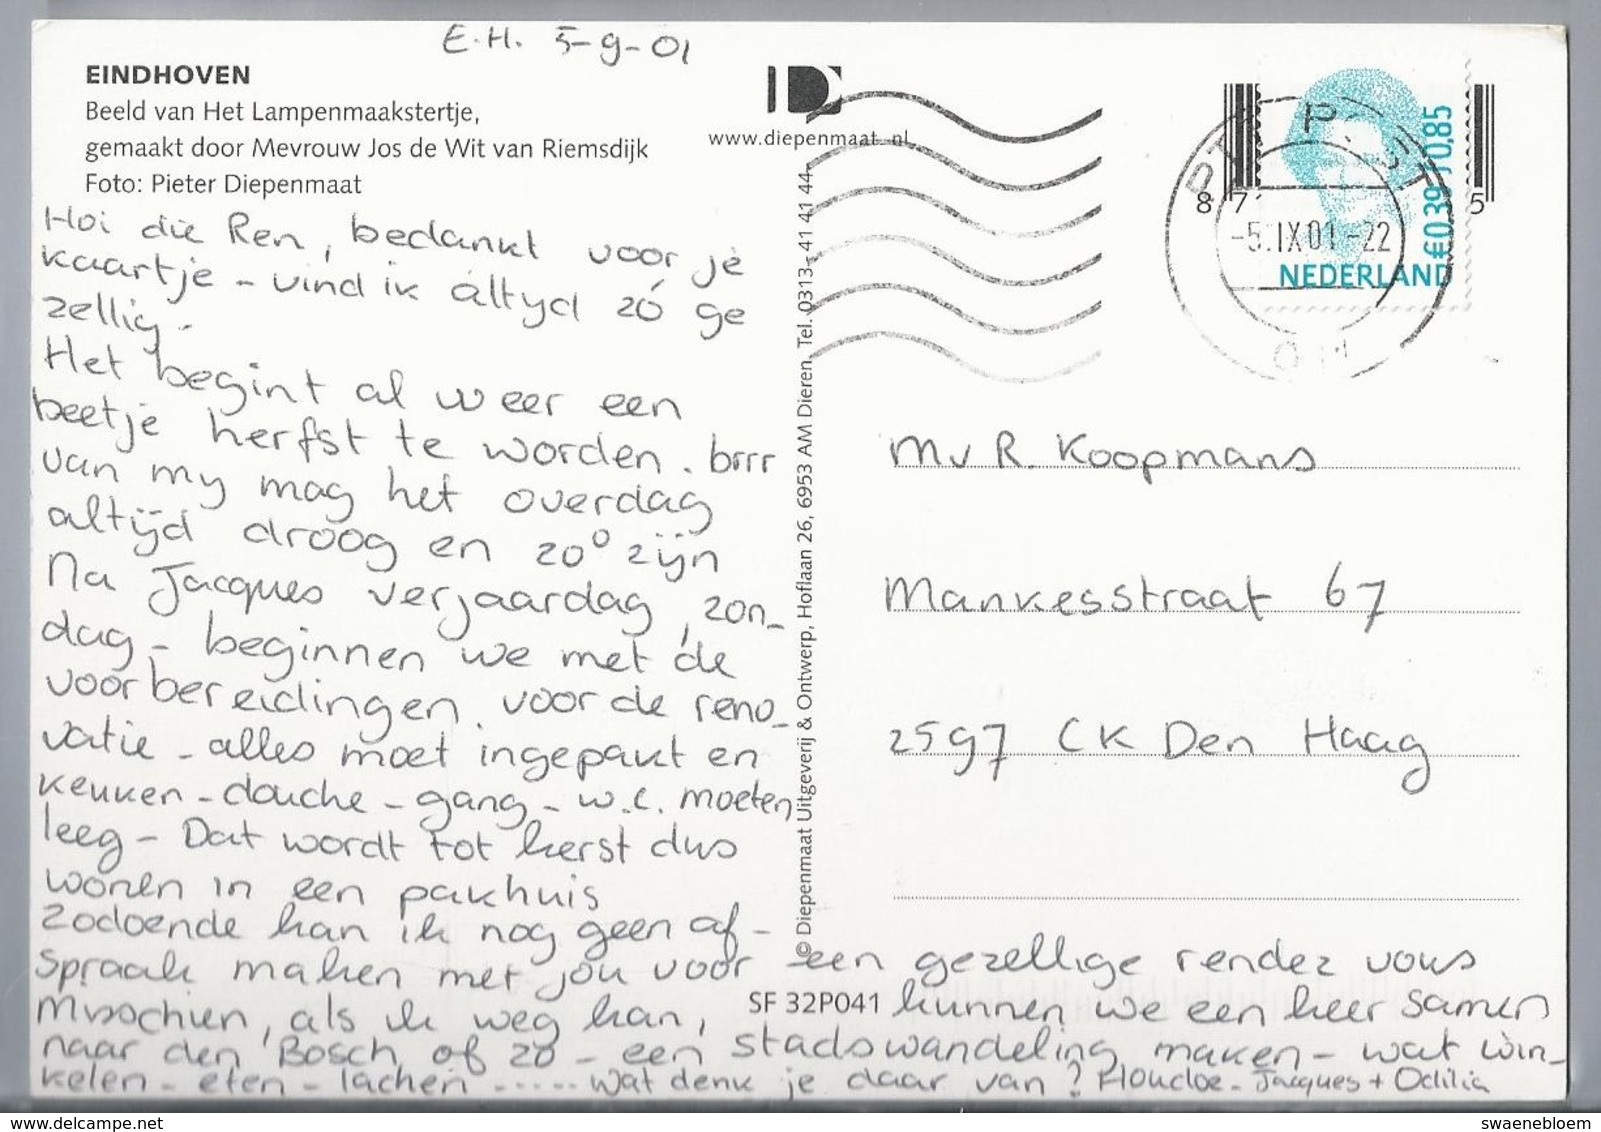 E.H. 5-9-01
EINDHOVEN
Beeld van Het Lampenmaakstertje,
gemaakt door Mevrouw Jos de Wit van Riemsdijk
Foto: Pieter Diepenmaat
www.diepenmaat.nl
Hoi die Ren, bedankt voor je
kaartje - vind ik altyd zó ge
zellig.
Het begint al weer een
beetje herfst te worden. brrr
van my mag het overdag
altijd droog en 20° zijn
Na Jacques verjaardag, zon-
dag - beginnen we met de
voorbereidingen voor de reno-
vatie - alles moet ingepakt en
keuken - douche - gang - w.c. moeten
leeg - Dat wordt tot kerst dus
wonen in een pakhuis
Zodoende kan ik nog geen af-
spraak maken met jou voor een gezellige rendez vous
Misschien, als ik weg kan, kunnen we een keer samen
naar den Bosch of zo - een stadswandeling maken - wat win-
kelen - eten - lachen ...... wat denk je daar van? Houdoe - Jacques + Odilia
© Diepenmaat Uitgeverij & Ontwerp, Hoflaan 26, 6953 AM Dieren, Tel. 0313 - 41 41 44
SF 32P041
PTT POST
87 5
-5.IX01-22
€0,39 / 0,85
NEDERLAND
Mv R. Koopmans
Mankesstraat 67
2597 CK Den Haag
delcampe.net
swaenebloem